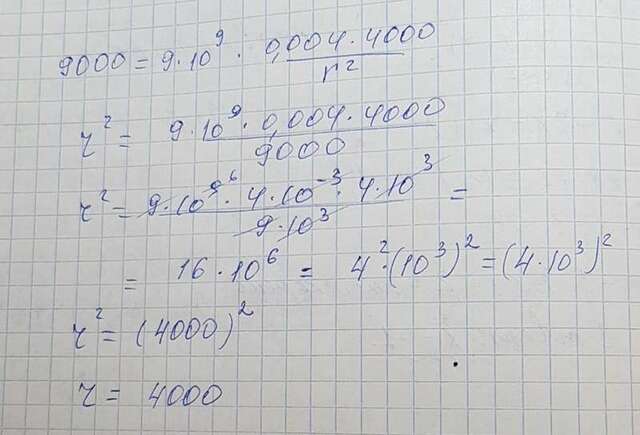 9000 = 9·10⁹ · 0,004·4000 / r²
r² = 9·10⁹·0,004·4000 / 9000
r² = 9·10⁹ ⁶·4·10⁻³·4·10³ / 9·10³ =
= 16·10⁶ = 4²·(10³)² = (4·10³)²
r² = (4000)²
r = 4000